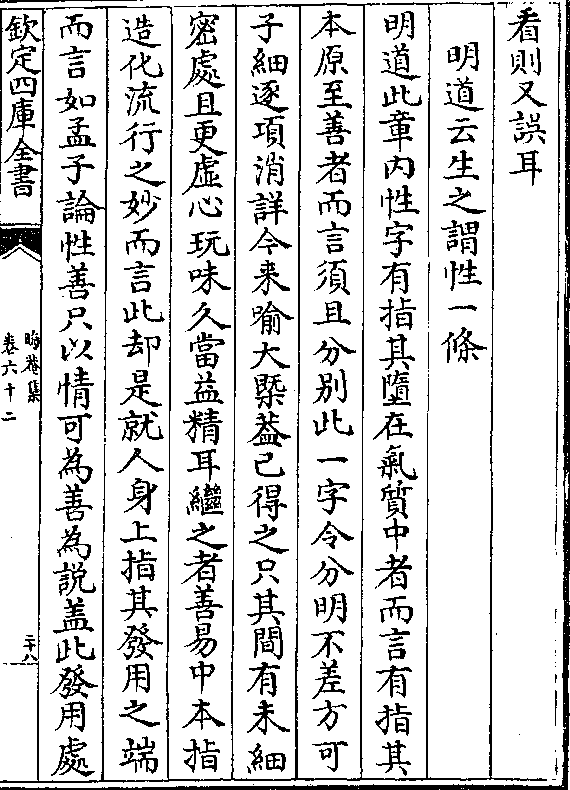 看則又誤耳
明道云生之謂性一條
明道此章内性字有指其墮在氣質中者而言有指其
本原至善者而言須且分别此一字令分明不差方可
子細逐項消詳今来喻大槩葢已得之只其間有未細
密處且更虚心玩味久當益精耳繼之者善易中本指
造化流行之妙而言此却是就人身上指其發用之端
而言如孟子論性善只以情可為善為説盖此發用處
欽定四庫全書
晦菴集
卷六十二
二十八